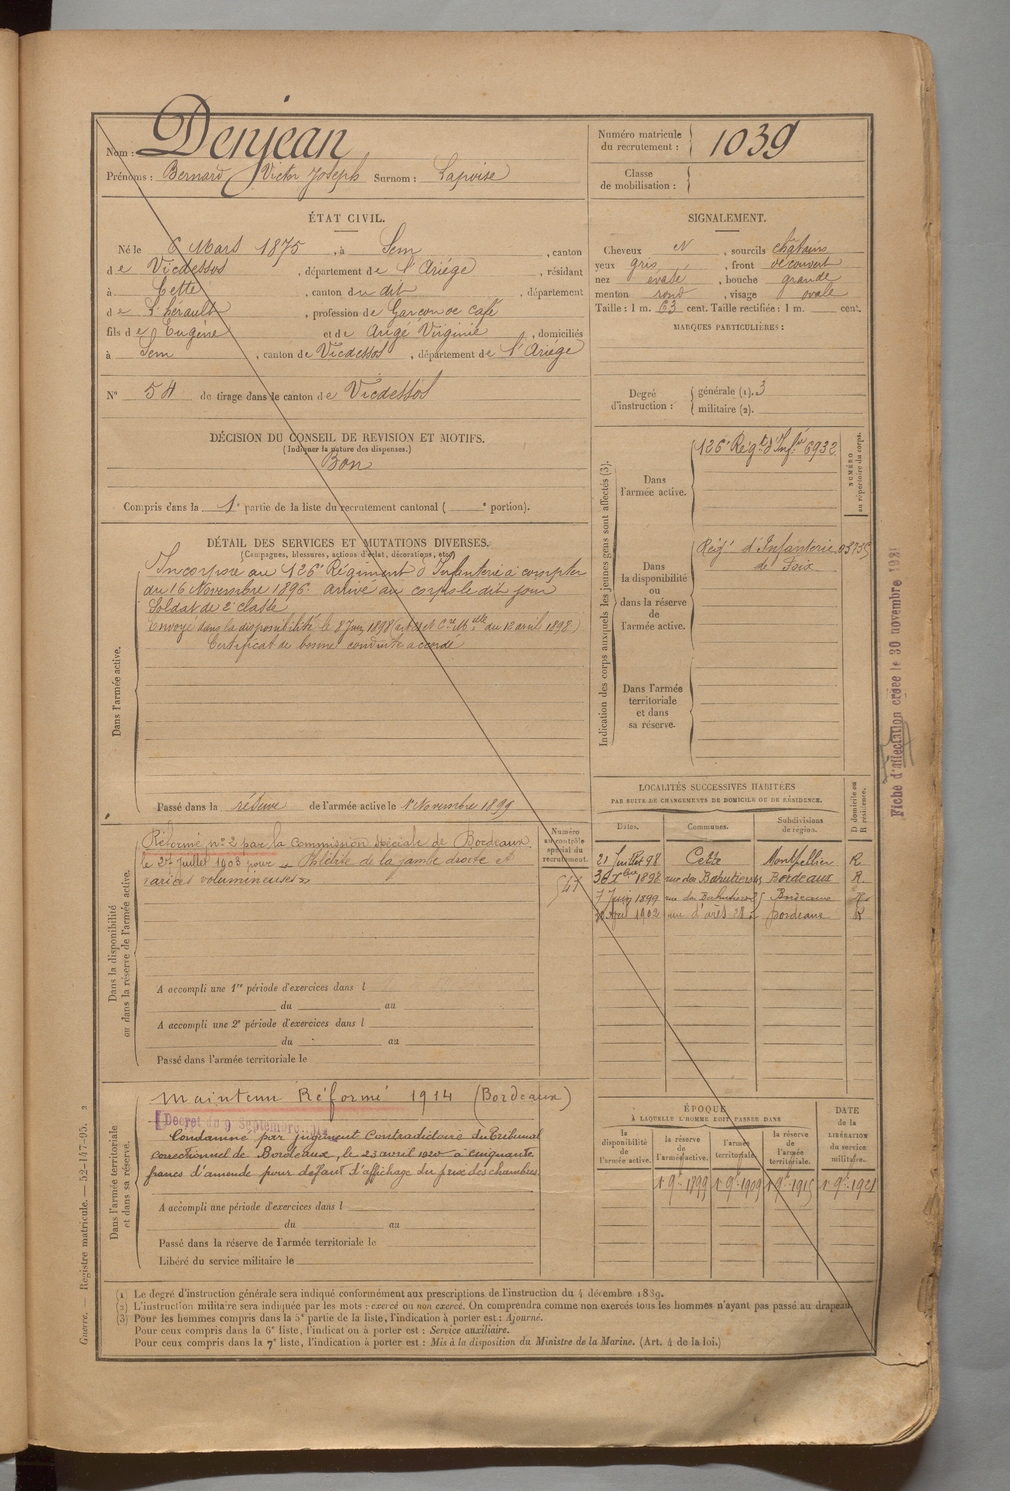 Nom : Denjean
Prénoms : Bernard Victor Joseph Surnom : Lapoise
Numéro matricule du recrutement : 1039
Classe de mobilisation :
ÉTAT CIVIL.
Né le 6 Mars 1875, à Sem, canton
de Vicdessos, département de l'Ariége, résidant
à Cette, canton du dit, département
de L'hérault, profession de Garçon de café
fils de Eugène et de Augé Virginie, domiciliés
à Sem, canton de Vicdessos, département de l'Ariége
N° 54 de tirage dans le canton de Vicdessos
DÉCISION DU CONSEIL DE REVISION ET MOTIFS.
(Indiquer la nature des dispenses.)
Bon
Compris dans la 1e partie de la liste du recrutement cantonal ( e portion).
SIGNALEMENT.
Cheveux N, sourcils châtains
yeux gris, front découvert
nez évasé, bouche grande
menton rond, visage ovale
Taille : 1 m. 63 cent. Taille rectifiée : 1 m. cent.
MARQUES PARTICULIÈRES :
Degré d'instruction : générale (1). 3
militaire (2).
DÉTAIL DES SERVICES ET MUTATIONS DIVERSES.
(Campagnes, blessures, actions d'éclat, décorations, etc.)
Dans l'armée active.
Incorporé au 126e Régiment d'Infanterie à compter
du 16 Novembre 1896. arrivé au corps le dit jour
Soldat de 2e classe
Envoyé dans la disponibilité le 8 Juin 1898 du 12 avril 1898.)
Certificat de bonne conduite accordé
Passé dans la réserve de l'armée active le 1er Novembre 1899
Indication des corps auxquels les jeunes gens sont affectés (3).
NUMÉRO au répertoire du corps.
Dans l'armée active.
126e Régt d'Infie 6932
Dans la disponibilité ou dans la réserve de l'armée active.
Régt d'Infanterie
de Foix
Dans l'armée territoriale et dans sa réserve.
Fiche d'affectation créée le 30 novembre
Dans la disponibilité ou dans la réserve de l'armée active.
Réformé n° 2 par la Commission spéciale de Bordeaux
le Juillet 1903 pour de la jambe droite et
varices volumineuses
Numéro au contrôle spécial du recrutement.
547
A accompli une 1re période d'exercices dans l
du au
A accompli une 2e période d'exercices dans l
du au
Passé dans l'armée territoriale le
LOCALITÉS SUCCESSIVES HABITÉES
PAR SUITE DE CHANGEMENTS DE DOMICILE OU DE RÉSIDENCE.
D domicile ou R résidence.
Dates. Communes. Subdivisions de région.
21 Juillet 98 Cette Montpellier R
30 Xbre 1898 rue des Bahutiers Bordeaux R
7 Juin 1899 rue des Bahutiers Bordeaux R
Avril 1902 rue d'arès Bordeaux R
Dans l'armée territoriale et dans sa réserve.
Maintenu Réformé 1914 (Bordeaux)
Décret du 9 Septembre
Condamné par jugement Contradictoire du Tribunal
correctionnel de Bordeaux, le 23 avril 1920 à cinquante
francs d'amende pour défaut d'affichage du prix des chambres.
A accompli une période d'exercices dans l
du au
Passé dans la réserve de l'armée territoriale le
Libéré du service militaire le
ÉPOQUE
À LAQUELLE L'HOMME DOIT PASSER DANS
DATE de la LIBÉRATION du service militaire.
la disponibilité de l'armée active.
la réserve de l'armée active.
l'armée territoriale.
la réserve de l'armée territoriale.
1er 9bre 1899 1er 9bre 1909 1er 9bre 1915 1er 9bre 1921
(1) Le degré d'instruction générale sera indiqué conformément aux prescriptions de l'instruction du 4 décembre 1889.
(2) L'instruction militaire sera indiquée par les mots : exercé ou non exercé. On comprendra comme non exercés tous les hommes n'ayant pas passé au drapeau.
(3) Pour les hommes compris dans la 5e partie de la liste, l'indication à porter est : Ajourné.
Pour ceux compris dans la 6e liste, l'indication à porter est : Service auxiliaire.
Pour ceux compris dans la 7e liste, l'indication à porter est : Mis à la disposition du Ministre de la Marine. (Art. 4 de la loi.)
Guerre. — Registre matricule. — 52-147-95. 2